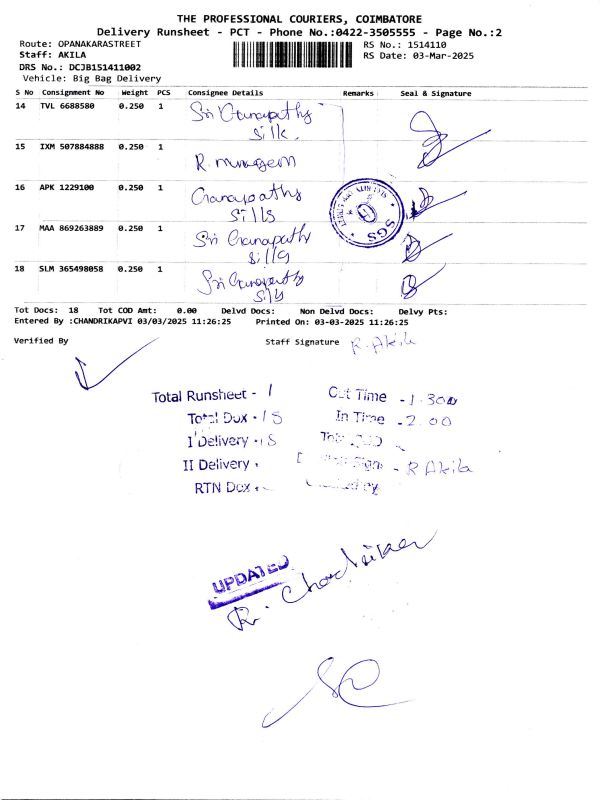 THE PROFESSIONAL COURIERS, COIMBATORE
Delivery Runsheet - PCT - Phone No.:0422-3505555 - Page No.:2
Route: OPANAKARASTREET RS No.: 1514110
Staff: AKILA RS Date: 03-Mar-2025
DRS No.: DCJB151411002
Vehicle: Big Bag Delivery
S No Consignment No Weight PCS Consignee Details Remarks Seal & Signature
14 TVL 6688580 0.250 1 Sri Ganapathy
Silk.
15 IXM 507884888 0.250 1
R murugesan
16 APK 1229100 0.250 1 Ganapathy
Silks
17 MAA 869263889 0.250 1 Sri Ganapathy
Silks
18 SLM 365498058 0.250 1 Sri Ganapathy
Silk
SGS
Tot Docs: 18 Tot COD Amt: 0.00 Delvd Docs: Non Delvd Docs: Delvy Pts:
Entered By :CHANDRIKAPVI 03/03/2025 11:26:25 Printed On: 03-03-2025 11:26:25
Verified By Staff Signature R. Akila
Total Runsheet - 1 Out Time - 1.30
Total Dox - 18 In Time - 2.00
I Delivery - 18
II Delivery . Sign - R Akila
RTN Dox .
UPDATED